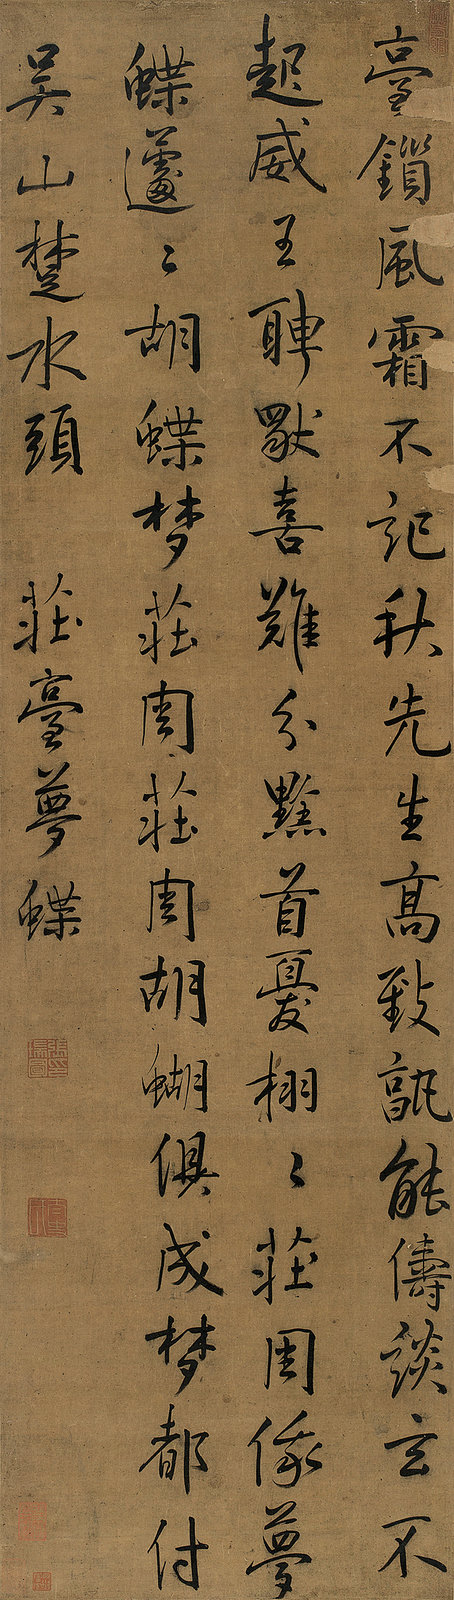 臺鎖風霜不記秋先生高致孰能儔談玄不
起威王聘喜難分黔首憂栩〻莊周俄夢
蝶蘧〻胡蝶梦莊周莊周胡蝴俱成梦都付
吳山楚水頭 莊臺夢蝶